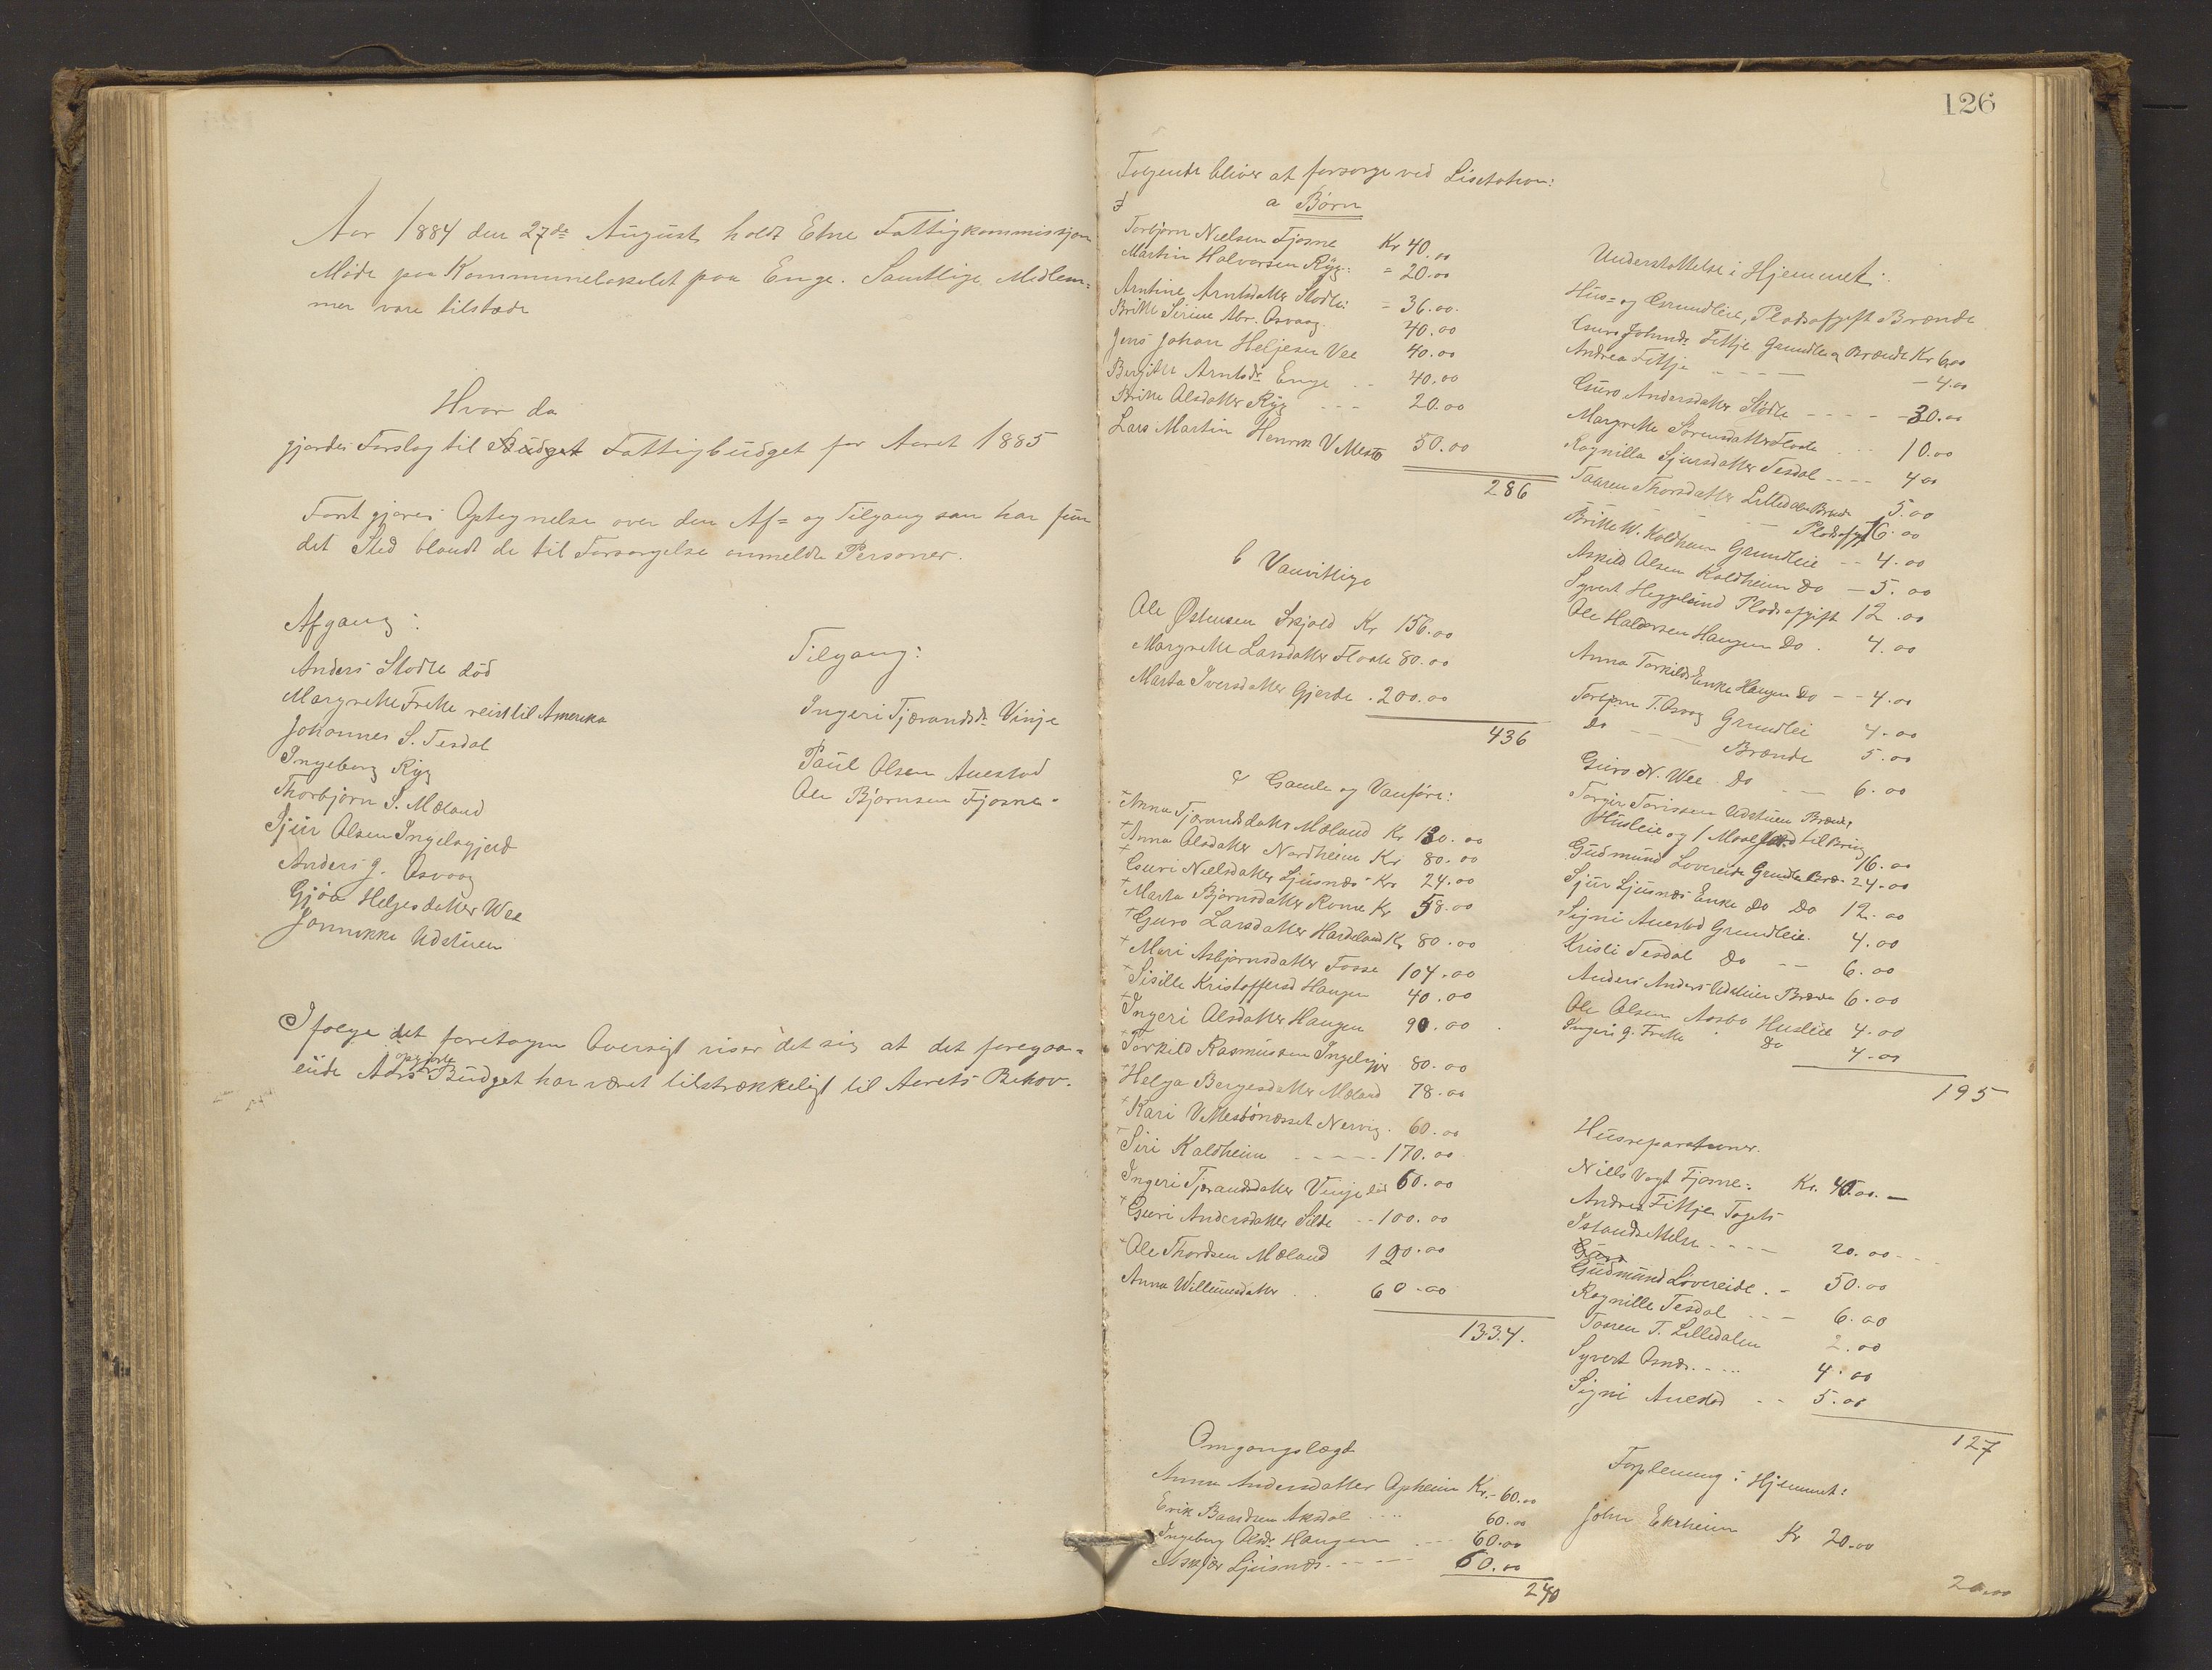 Aar 1884 den 27de August holdt Etne Fattigkommissjon
Møde paa Kommunelokalet paa Enge. Samtlige Medlem=
mer vare tilstede
Hvor da
gjordes Forslag til Budget Fattigbudget for Aaret 1885
Først gjøres Optegnelse over den Af= og Tilgang som har fun
det Sted blandt de til Forsørgelse anmeldte Personer.
Afgang:
Anders Stødle død
Margrethe Frette reist til Amerika
Johannes S. Tesdal
Ingeborg Ryg
Thorbjørn S. Mæland
Sjur Olsen Ingelsgjerd
Anders J. Osvaag
Gjøa Helgesdatter Wee
Jannikke Udstuen
Tilgang:
Ingeri Tjærandsdr Vinje
Paul Olsen Auestad
Ole Bjørnsen Fjøsne
Ifølge det foretagne Oversigt viser det sig at det foregaa=
ende Aars opgjorte Budget har været tilstrækkeligt til Aarets Behov.
126
Følgende bliver at forsørge ved Lisitation:
a Børn
Torbjørn Nielsen Fjøsne Kr 40.00
Martin Halvorsen Ryg: = 20.00
Arntine Arntsdatter Stødle: = 36.00.
Britte Serine Abr. Osvaag. 40.00
Jens Johan Heljesen Vee 40.00
Bergitte Arntsdr Enge -- 40.00
Britte Olsdatter Ryg --- 20.00
Lars Martin Henrik V Mestø 50.00
286
b Vanvittige
Ole Østensen Skjold Kr 156.00
Margrethe Larsdatter Floate 80.00
Marta Iversdatter Gjerde . 200.00
436
c Gamle og Vanføre:
+Anna Tjærandsdatter Mæland Kr 130.00
+Anna Olsdatter Nordheim Kr 80.00
+Guri Nielsdatter Ljusnes Kr 24.00
+Marta Bjørnsdatter Rame Kr 58.00
+Guro Larsdatter Hardeland Kr 80.00
+Mari Asbjørnsdatter Fosse 104.00
+Sisille Kristoffersd Haugen 40.00
+Ingeri Olsdatter Haugen 90.00
+Torkild Rasmussen Ingelsgjer 80.00
Helga Bergesdatter Mæland 78.00
+Kari V Mestønesset Nervig. 60.00
+Siri Kaldheim ----- 170.00
Ingeri Tjærandsdatter Vinje 60.00
+Guri Andersdatter Silde -- 100.00
+Ole Thordsen Mæland 120.00
Anna Willumsdatter . . 60.00
1334.
Omgangslægd
Anna Andersdatter Opheim Kr.- 60.00
Erik Baardsen Aksdal .... 60.00
Ingeborg Olsdr Haugen .--- 60.00
Ljusnes.----- 60.00
240
Understøttelse i Hjemmet:
Hus= og Grundleie, Pladsafgift Brænde
Guro Johnsdr Fittje Grundleie & Brænde Kr 6.00
Andrea Fittje ---- - 4.00
Guro Andersdatter Stødle ---- -30.00
Margrethe Sørensdatter Floate ... 10.00
Ragnilla Sjursdatter Tesdal ---- 4.00
Taaren Thorsdatter Lilledalen Brænde 5.00
--- Pladsafgift 6.00
Britte W. Kaldheim Grundleie -- 4.00
Askild Olsen Kaldheim Do - 5.00
Syvert Heggelund Pladsafgift 12.00
Ole Haldorsen Haugen Do . 4.00
Anna Torkilds Enke Haugen Do -- 4.00
Torbjørn T. Osvag Grundlei 4.00
Do --- Brænde 5.00
Guro N. Wee . Do --- 6.00
Torgir Torissen Udstuen Brænde
Husleie og 1 Maal Jord til Brug 16.00
Gudmund Lovereide Grundle Bræ- 24.00
Sjur Ljusnes Enke Do Do 12.00
Signi Auestad Grundleie. 4.00
Kristi Tesdal Do -- 6.00
Anders Anders Udstuen Brænde 6.00
Ole Olsen Aasbø Husleie 4.00
Ingeri J. Frette Do 4.00
195
Husreparationer.
Niels Vogt Fjøsne: Kr. 40.00.-
Andrea Fittje Tagets
Istandsettelse ---- 20.00--
Guro
Gudmund Lovereide. - 50.00
Ragnille Tesdal --- 6.00
Taaren T. Lilledalen 2.00
Syvert Osnes.---.. 4.00
Signi Auestad -- 5.00
127
Forpleining i Hjemmet:
John Ekrheim Kr 20.00
20.00